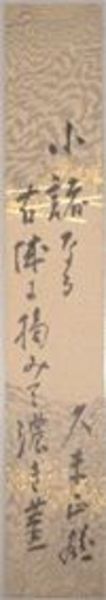 小諸なる
古城に摘みて濃き菫
久米正雄